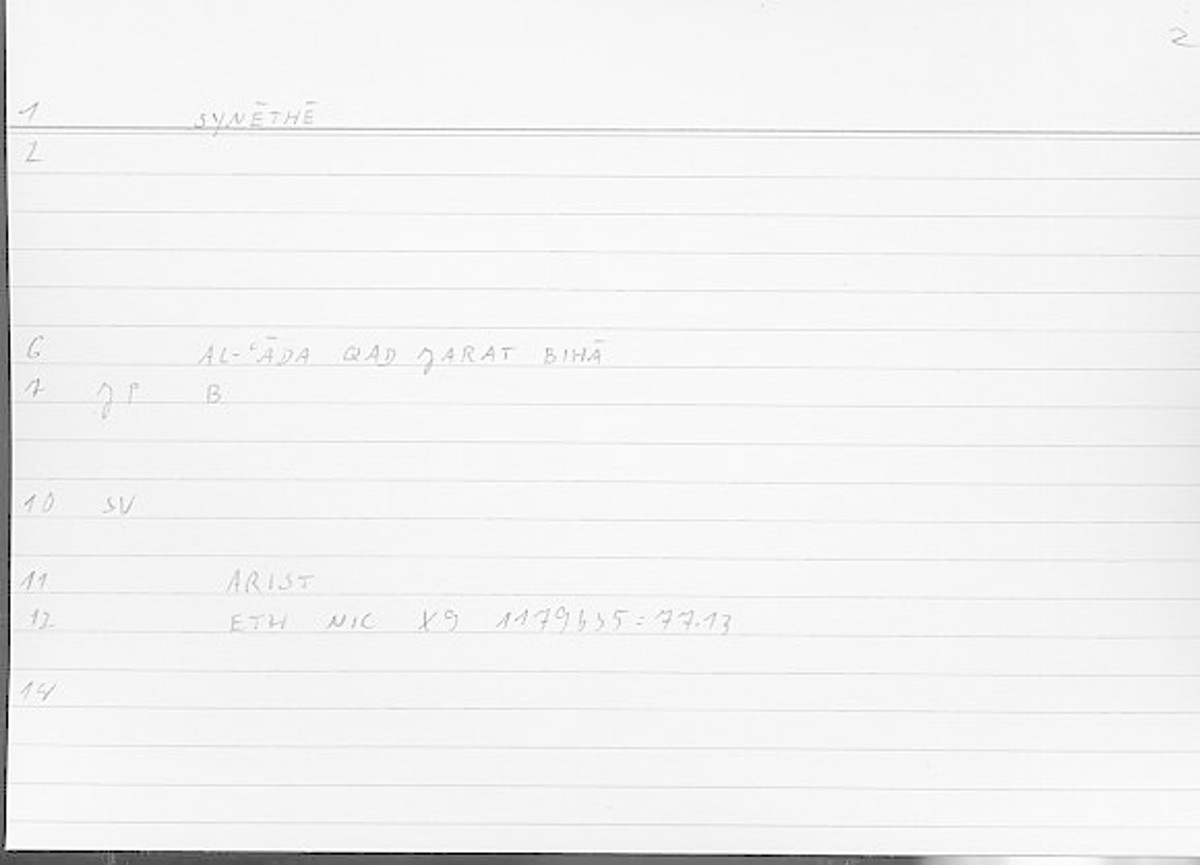 2
1 SYNĒTHĒ
2
6 AL-ʿĀDA QAD JARAT BIHĀ
7 JP B
10 SV
11 ARIST
12 ETH NIC X9 1179b35=77.13
14